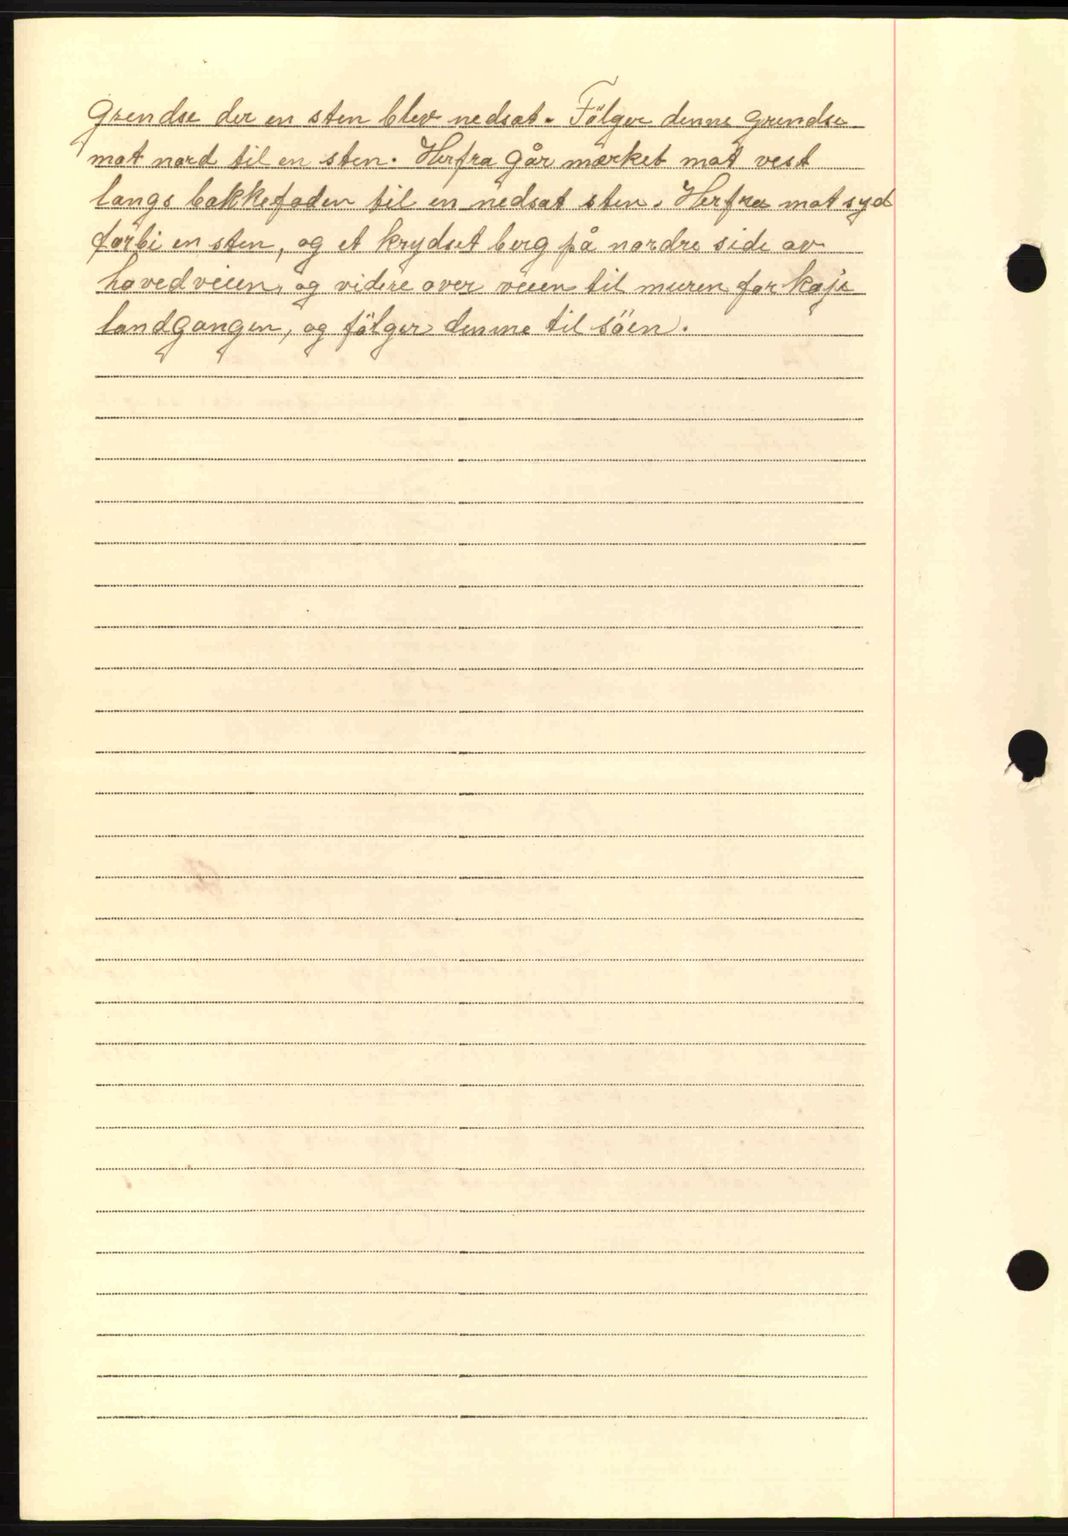 grendse der en sten blev nedsat. Følger denne grendse
mot nord til en sten. Herfra går mærket mot vest
langs bakkefoden til en nedsat sten. Herfra mot syd
forbi en sten, og et krydset berg på nordre side av
hovedveien, og videre over veien til muren for kaje
landgangen, og følger denne til søen.